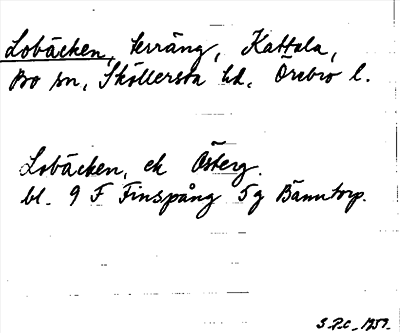 Lobäcken, terräng, Kattala,
Bo sn, Sköllersta hd, Örebro l.
Lobäcken, ek Österg.
bl. 9 F Finspång 5g Bänntorp.
S.P.C. 1959.